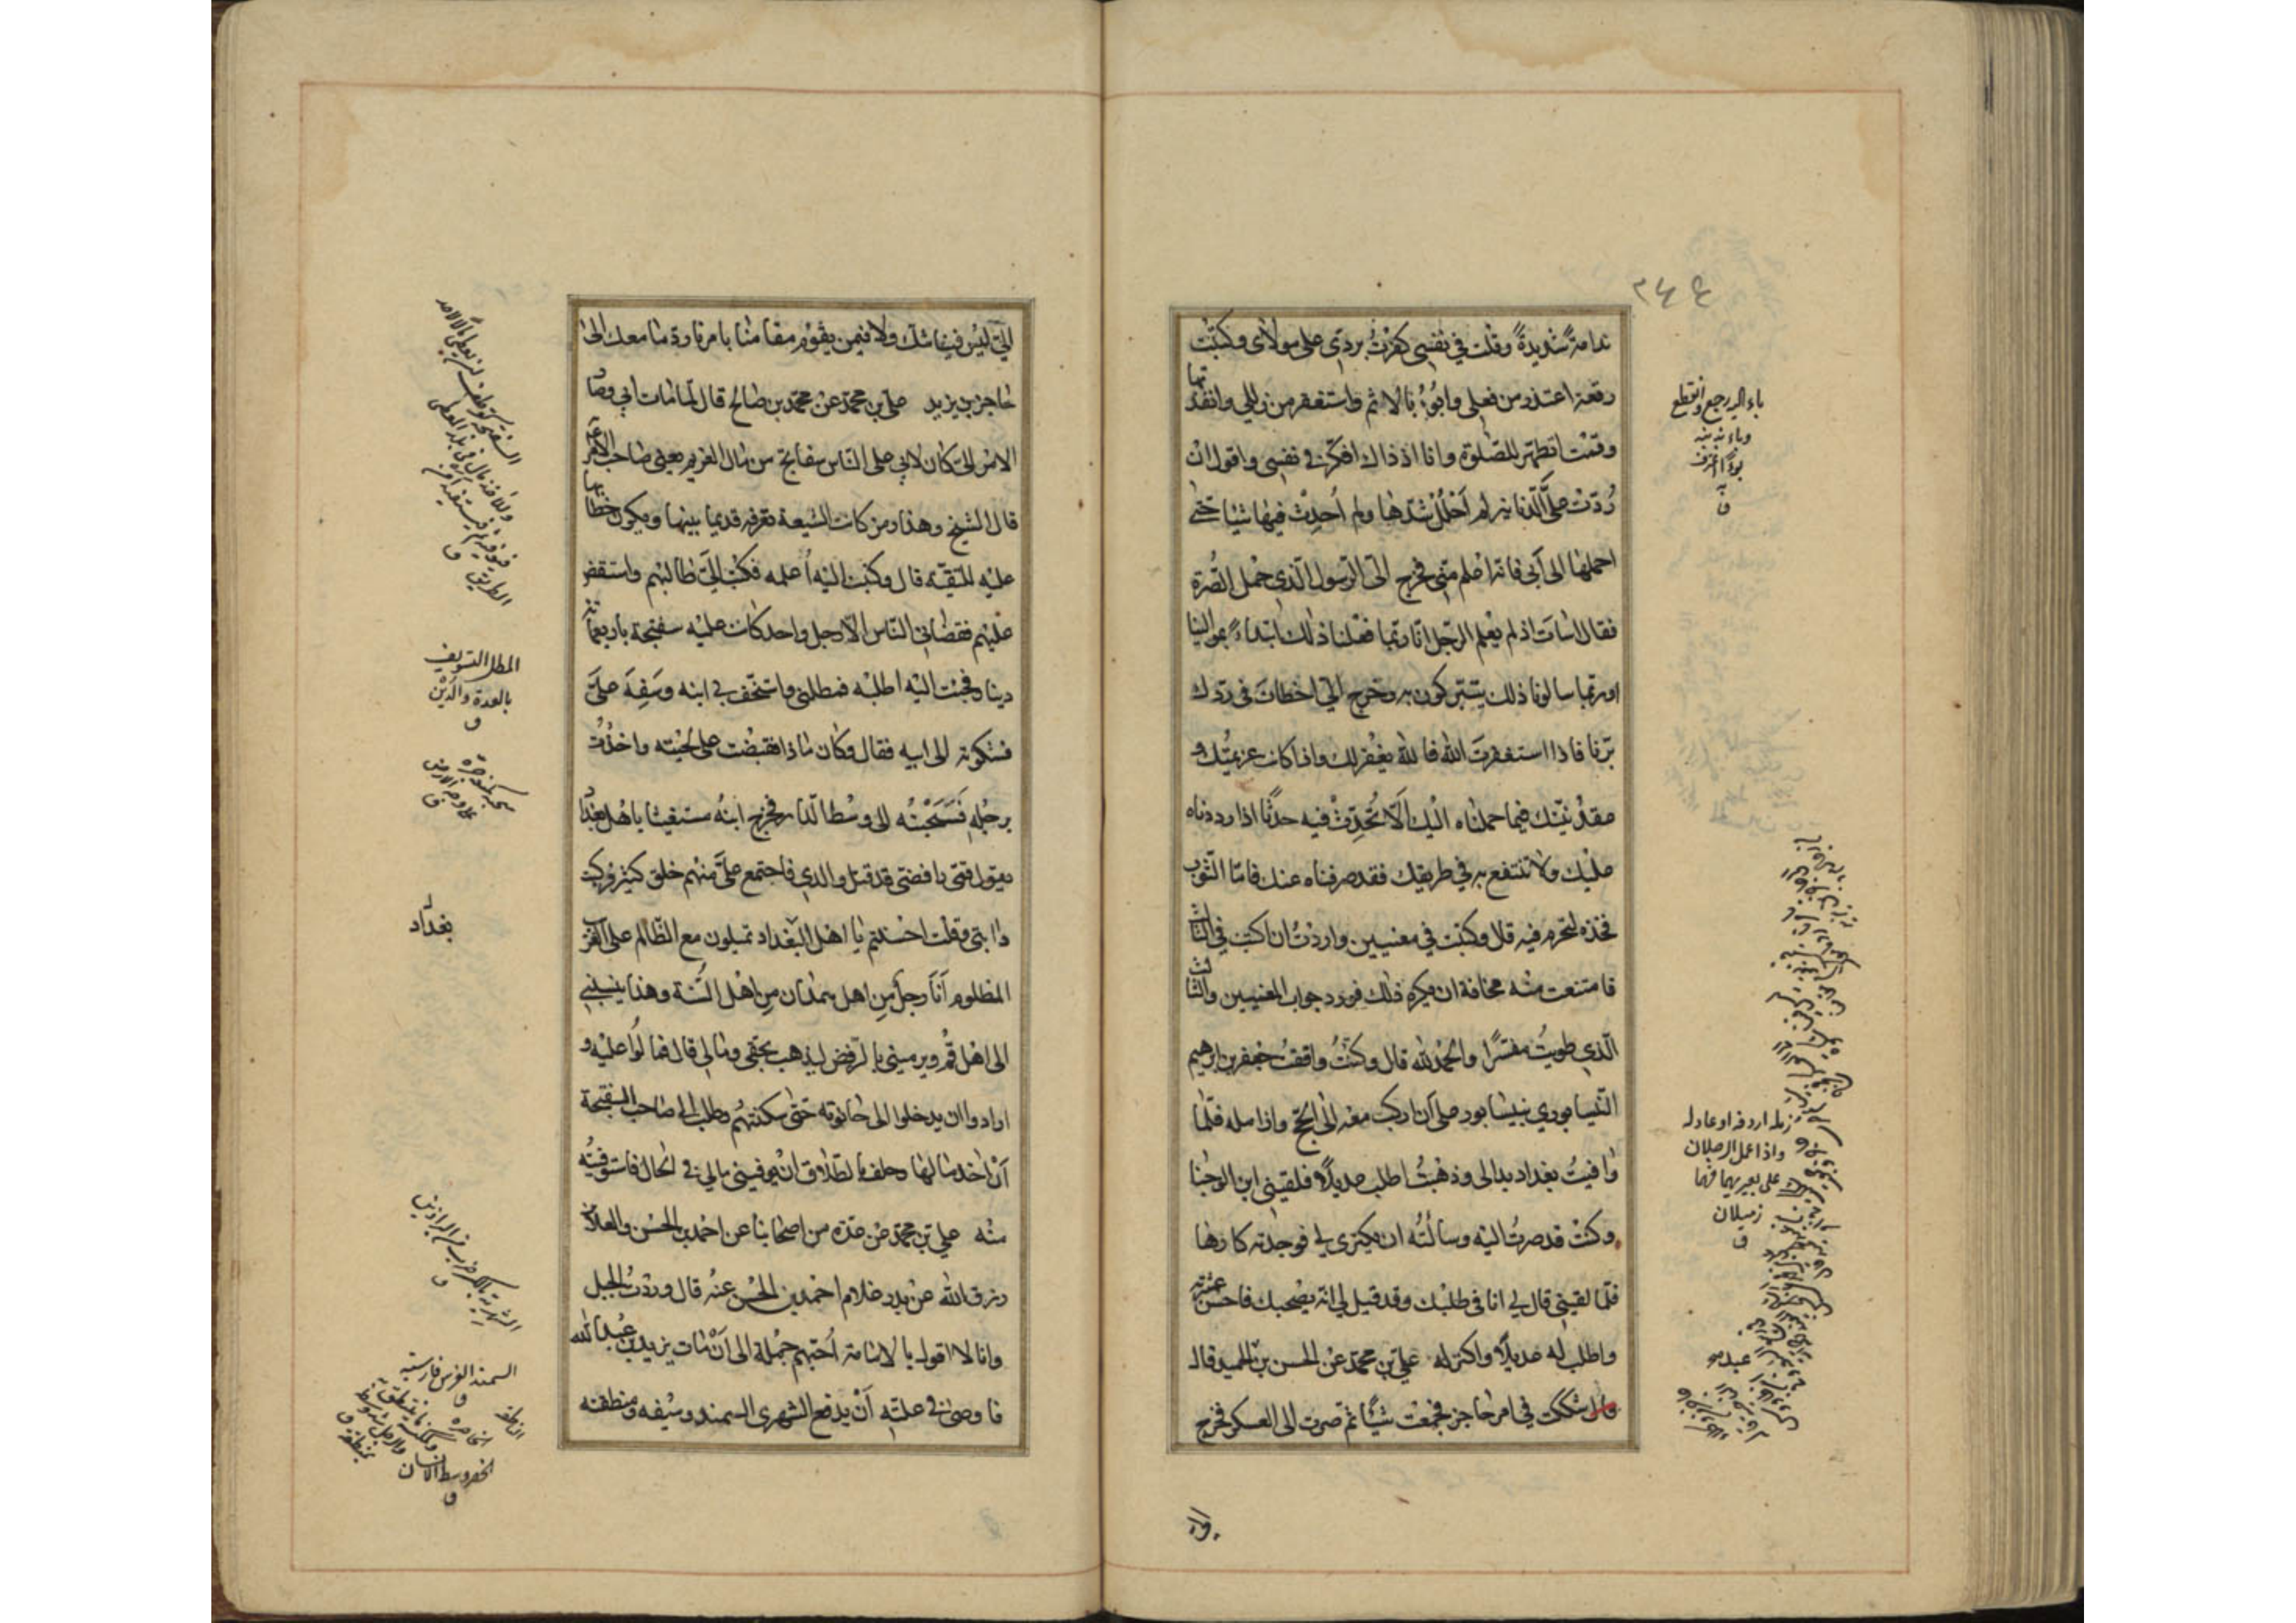 ٢٤٤
ندامة شديدة وقلت في نفسي كفرت بردي على مولاى وكتبت
رقعة اعتذر من فعلى وابوء بالاثم واستغفر من زللي وانفذتها
وقمت اتطهر للصلوة وانا اذ ذاك افكر في نفسي واقول ان
ردت على الدنانير لم احلل شدها ولم أحدث فيها شيئا حتى
احملها الى ابى فانه اعلم منى فخرج الى الرسول الذي حمل الصرة
فقال اسات اذ لم يعلم الرجل انا ربما فعلنا ذلك ابتداء بموالينا
او ربما سالونا ذلك يتبركون به وخرج الي اخطات فى ردك
برنا فاذا استغفرت الله فالله يغفر لك واذا كانت عزيمتك و
عقد نيتك فيما حملناه اليك ألا تحدث فيه حدثا اذا رددناه
عليك ولا تنتفع به في طريقك فقد صرفناه عنك فاما الثوب
فخذه لتحرم فيه قال وكتبت في معنيين واردت ان اكتب في الثالث
فامتنعت منه مخافة ان يكره ذلك فورد جواب المعنيين والثالث
الذي طويت مفسرا والحمد لله قال وكنت واقفت جعفر بن ابرهيم
النيسابوري بنيسابور على ان اركب معه الى الحج وازامله فلما
وافيت بغداد بدالى وذهبت اطلب عديلا فلقيني ابن الوجنا
وكنت قد صرت اليه وسالته ان يكترى لي فوجدته كارها
فلما لقيني قال لي انا في طلبك وقد قيل لي انه يصحبك فاحسن عشرته
واطلب له عديلا واكتر له علي بن محمد عن الحسن بن عبد الحميد قال
شككت في امر حاجز فجمعت شيئا ثم صرت الى العسكر فخرج
باء اليه رجع وانقطع
وباء بذنبه
بوءا اعترف
به
ق
زمله اردفه او عادله
واذا عمل الرجلان
على بعيريهما فهما
زميلان
ق
عبد صح
الي ليس فينا شك ولا فيمن يقوم مقامنا بامرنا رد ما معك الى
حاجز بن يزيد علي بن محمد عن محمد بن صالح قال لما مات ابي وصار
الامر الى كان لابي على الناس سفاتج من مال الغريم يعنى صاحب الامر
قال الشيخ وهذا رمز كانت الشيعة تعرفه قديما بينها ويكون خطابها
عليه للتقيه قال وكتبت اليه أعلمه فكتب الي طالبهم واستقض
عليهم فقضاني الناس الا رجل واحد كانت عليه سفتجة باربعمائة
دينار فجئت اليه اطلبه فمطلني واستخف بي ابنه وسفه علي
فشكوته الى ابيه فقال وكان ماذا فقبضت على لحيته واخذت
برجله فسحبته الى وسط الدار فخرج ابنه مستغيثا باهل بغداد
يقول قمى رافضى قد قتل والدي فاجتمع على منهم خلق كثير فركبت
دابتي وقلت احسنتم يا اهل البغداد تميلون مع الظالم على الغريب
المظلوم أنا رجل من اهل همدان من اهل السنة وهذا ينسبني
الى اهل قم ويرميني بالرفض ليذهب بحقي ومالي قال فمالوا عليه و
ارادوا ان يدخلوا الى حانوته حتى سكنتهم وطلب الي صاحب السفتجة
أن اخذ مالها وحلف بالطلاق ان يوفيني مالي في الحال فاستوفيته
منه علي بن محمد عن عدة من اصحابنا عن احمد بن الحسن والعلاء بن
رزق الله عن بدر غلام احمد بن الحسن عنه قال وردت الجبل
وانا لا اقول بالامامة أحبهم جملة الى أن مات يزيد بن عبد الله
فاوصى في علته أن يدفع الشهرى السمند وسيفه ومنطقته
المطل التسويف
بالعدة والدين
ق
سحبه كمنعه جره
على وجه الارض
ق
بغداد
السمند الفرس فارسية
ق